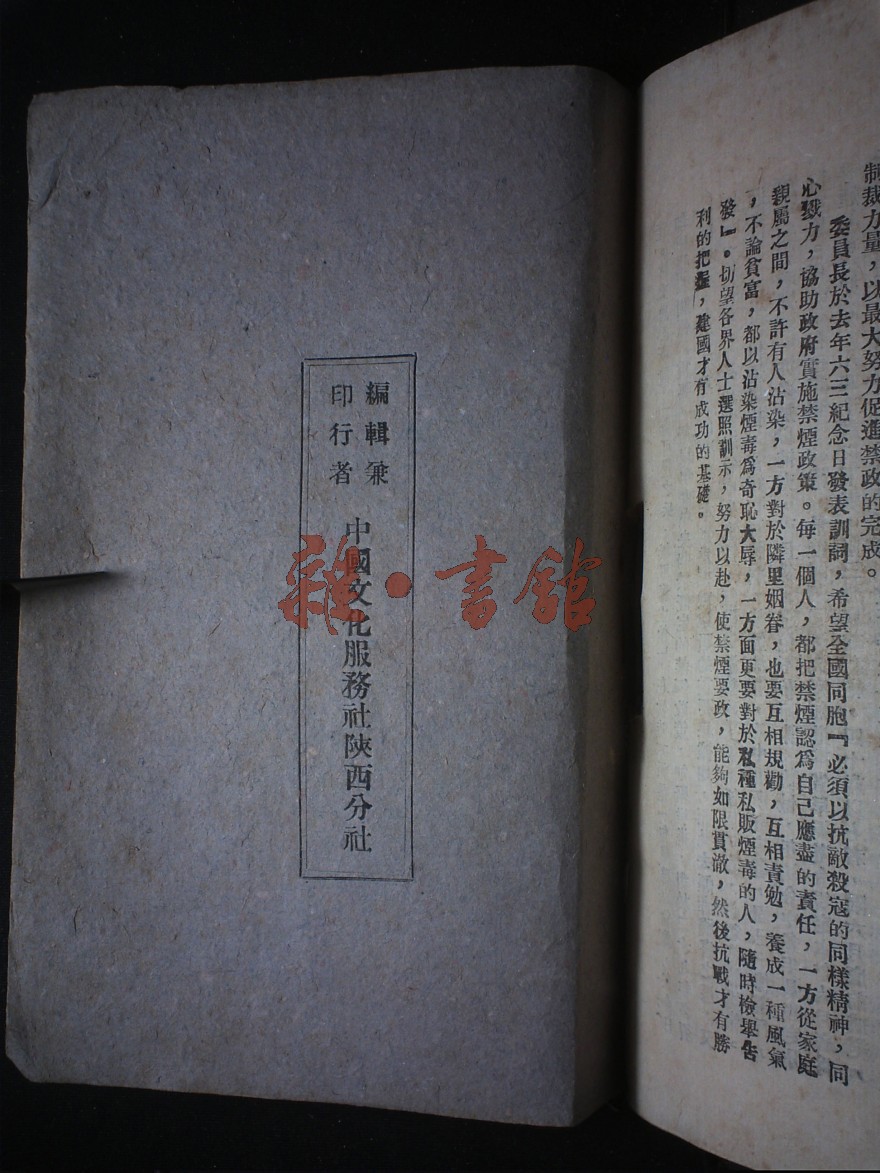 制裁力量，以最大努力促進禁政的完成。
委員長於去年六三紀念日發表訓詞，希望全國同胞『必須以抗敵殺寇的同樣精神，同
心戮力，協助政府實施禁煙政策。每一個人，都把禁煙認爲自己應盡的責任，一方從家庭
親屬之間，不許有人沾染，一方對於隣里姻眷，也要互相規勸，互相責勉，養成一種風氣
，不論貧富，都以沾染煙毒爲奇恥大辱，一方面更要對於私種私販煙毒的人，隨時檢舉告
發』。切望各界人士選照訓示，努力以赴，使禁煙要政，能夠如限貫澈，然後抗戰才有勝
利的把握，建國才有成功的基礎。
編輯兼
印行者
中國文化服務社陝西分社
雜·書館